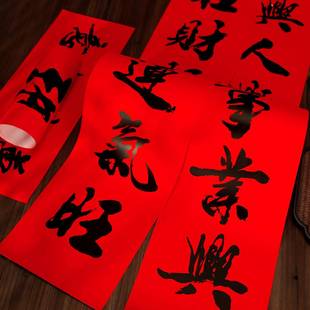 興人
旺財
事業興
運氣旺
旺